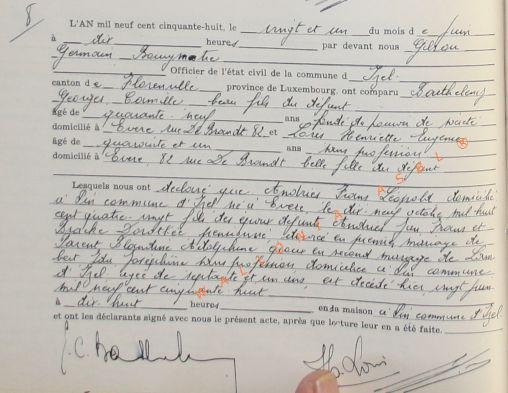 8
L'AN mil neuf cent cinquante-huit, le vingt et un du mois de juin
à dix heures par devant nous Gilson
Germain,
Officier de l'état civil de la commune d'Izel
canton de Florenville province de Luxembourg, ont comparu Barthelemy
Georges Camille beau fils du défunt
âgé de quarante neuf ans
domicilié à Evere rue De Brandt 82 et Henriette Eugenie
âgé de quarante et un ans sans profession
domicilié à Evere, 82 rue De Brandt belle fille du défunt
Lesquels nous ont déclaré que Andries Frans Léopold domicilié
à en commune d'Izel né à Evere le dix neuf octobre mil huit
cent quatre-vingt fils des époux défunts Andries Jean Frans et
Dorothée pensionné divorcé en premier mariage de
Parent Blandine Adolphine époux en second mariage de Lam
bert Ida Joséphine sans profession domiciliée à en commune
d'Izel agée de septante et un ans, est décédé hier vingt juin
mil neuf cent cinquante huit
à dix huit heures en sa maison à en commune d'Izel
et ont les déclarants signé avec nous le présent acte, après que lecture leur en a été faite.